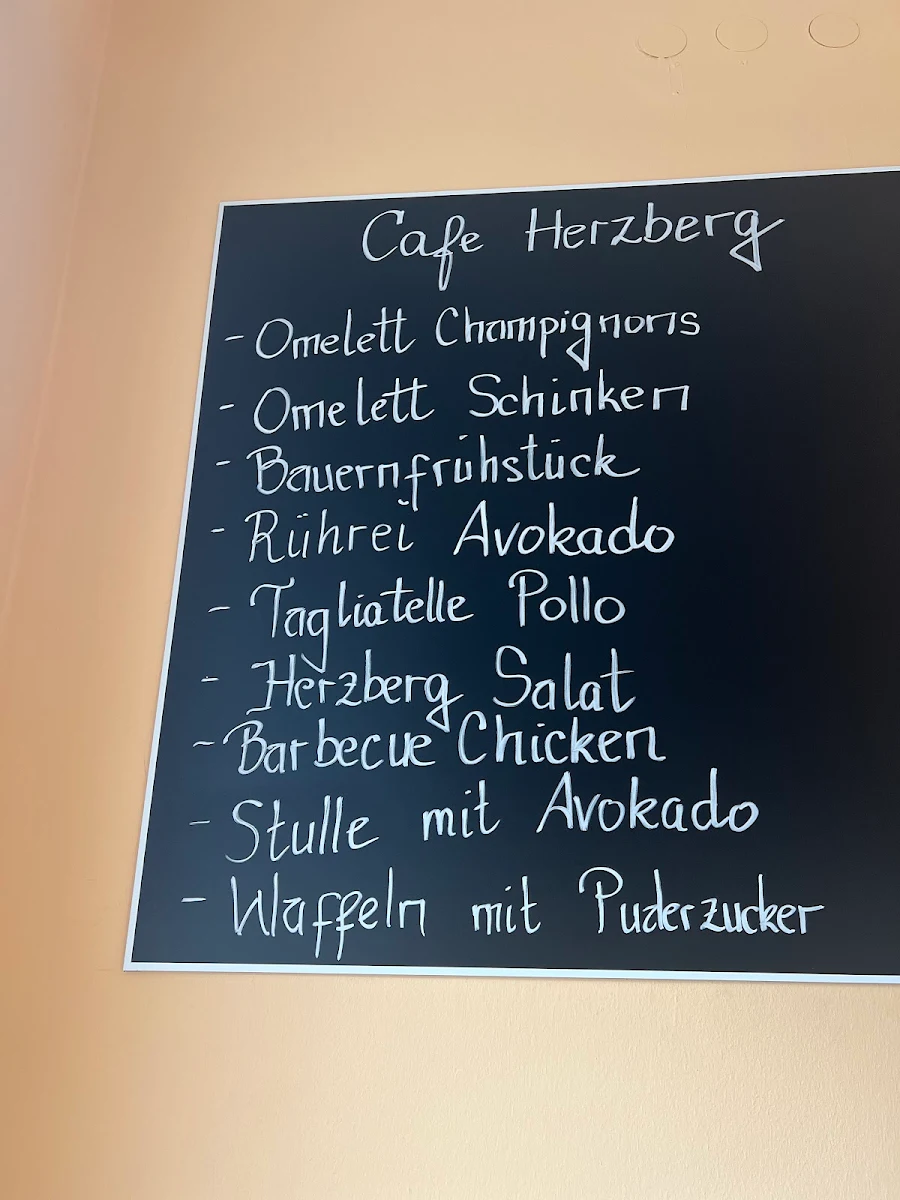 Cafe Herzberg
- Omelett Champignons
- Omelett Schinken
- Bauernfrühstück
- Rührei Avokado
- Tagliatelle Pollo
- Herzberg Salat
- Barbecue Chicken
- Stulle mit Avokado
- Waffeln mit Puderzucker